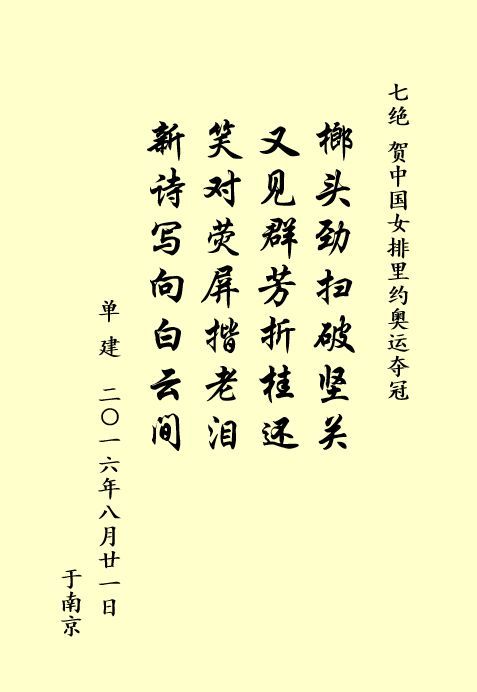 七绝 贺中国女排里约奥运夺冠
榔头劲扫破坚关
又见群芳折桂还
笑对荧屏揩老泪
新诗写向白云间
单建 二〇一六年八月廿一日
于南京